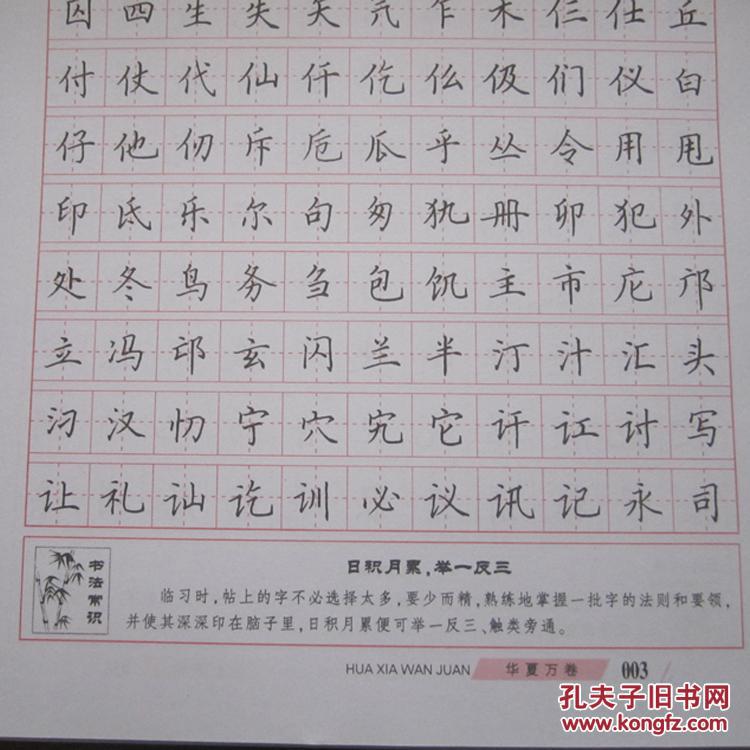 囚 四 生 失 矢 氕 乍 禾 仨 仕 丘
付 仗 代 仙 仟 仡 仫 伋 们 仪 白
仔 他 仞 斥 卮 瓜 乎 丛 令 用 甩
印 氐 乐 尔 句 匆 犰 册 卯 犯 外
处 冬 鸟 务 刍 包 饥 主 市 庀 邝
立 冯 邙 玄 闪 兰 半 汀 汁 汇 头
汈 汉 忉 宁 穴 宄 它 讦 讧 讨 写
让 礼 讪 讫 训 必 议 讯 记 永 司
书法常识
日积月累,举一反三
临习时,帖上的字不必选择太多,要少而精,熟练地掌握一批字的法则和要领,
并使其深深印在脑子里,日积月累便可举一反三、触类旁通。
HUA XIA WAN JUAN 华夏万卷 003
孔夫子旧书网
www.kongfz.com